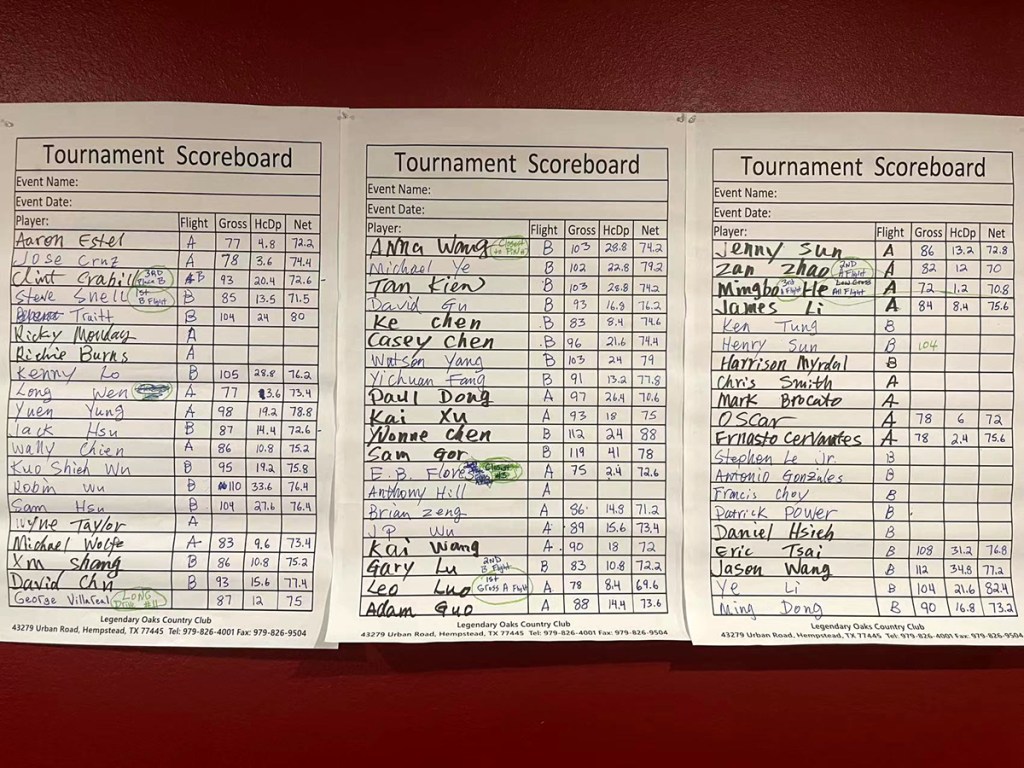 Tournament Scoreboard
Event Name:
Event Date:
Player: Flight Gross HcDp Net
Aaron Estel A 77 4.8 72.2
Jose Cruz A 78 3.6 74.4
Clint Crabill 3RD Place B B 93 20.4 72.6
Steve Snell 1st B Flight B 85 13.5 71.5
Traitt B 104 24 80
Ricky Monday A
Richie Burns A
Kenny Lo B 105 28.8 76.2
Long Wen A 77 3.6 73.4
Yuen Yung A 98 19.2 78.8
Jack Hsu B 87 14.4 72.6
Wally Chien A 86 10.8 75.2
Kuo Shieh Wu B 95 19.2 75.8
Robin Wu B 110 33.6 76.4
Sam Hsu B 104 27.6 76.4
Wyne Taylor A
Michael Wolfe A 83 9.6 73.4
Xm Shang B 86 10.8 75.2
David Chu B 93 15.6 77.4
George Villareal LONG Drive #11 87 12 75
Legendary Oaks Country Club
43279 Urban Road, Hempstead, TX 77445 Tel: 979-826-4001 Fax: 979-826-9504
Tournament Scoreboard
Event Name:
Event Date:
Player: Flight Gross HcDp Net
Anna Wang Closest to Pin B 103 28.8 74.2
Michael Ye B 102 22.8 79.2
Tan Kien B 103 28.8 74.2
David Gu B 93 16.8 76.2
Ke Chen B 83 8.4 74.6
Casey Chen B 96 21.6 74.4
Watson Yang B 103 24 79
Yichuan Fang B 91 13.2 77.8
Paul Dong A 97 26.4 70.6
Kai Xu A 93 18 75
Yvonne Chen B 112 24 88
Sam Gor B 119 41 78
E.B. Flores Closest A 75 2.4 72.6
Anthony Hill A
Brian Zeng A 86 14.8 71.2
J.P Wu A 89 15.6 73.4
Kai Wang A 90 18 72
Gary Lu 2ND B Flight B 83 10.8 72.2
Leo Luo 1st Gross A Flight A 78 8.4 69.6
Adam Guo A 88 14.4 73.6
Legendary Oaks Country Club
43279 Urban Road, Hempstead, TX 77445 Tel: 979-826-4001 Fax: 979-826-9504
Tournament Scoreboard
Event Name:
Event Date:
Player: Flight Gross HcDp Net
Jenny Sun A 86 13.2 72.8
Zan Zhao 2ND A Flight A 82 12 70
Mingbo He 3rd A Flight Low Gross All Flight A 72 1.2 70.8
James Li A 84 8.4 75.6
Ken Tung B
Henry Sun B 104
Harrison Myrdal B
Chris Smith A
Mark Brocato A
Oscar A 78 6 72
Ernasto Cervantes A 78 2.4 75.6
Stephen Le Jr. B
Antonio Gonzales B
Francis Choy B
Patrick Power B
Daniel Hsieh B
Eric Tsai B 108 31.2 76.8
Jason Wang B 112 34.8 77.2
Ye Li B 104 21.6 82.4
Ming Dong B 90 16.8 73.2
Legendary Oaks Country Club
43279 Urban Road, Hempstead, TX 77445 Tel: 979-826-4001 Fax: 979-826-9504